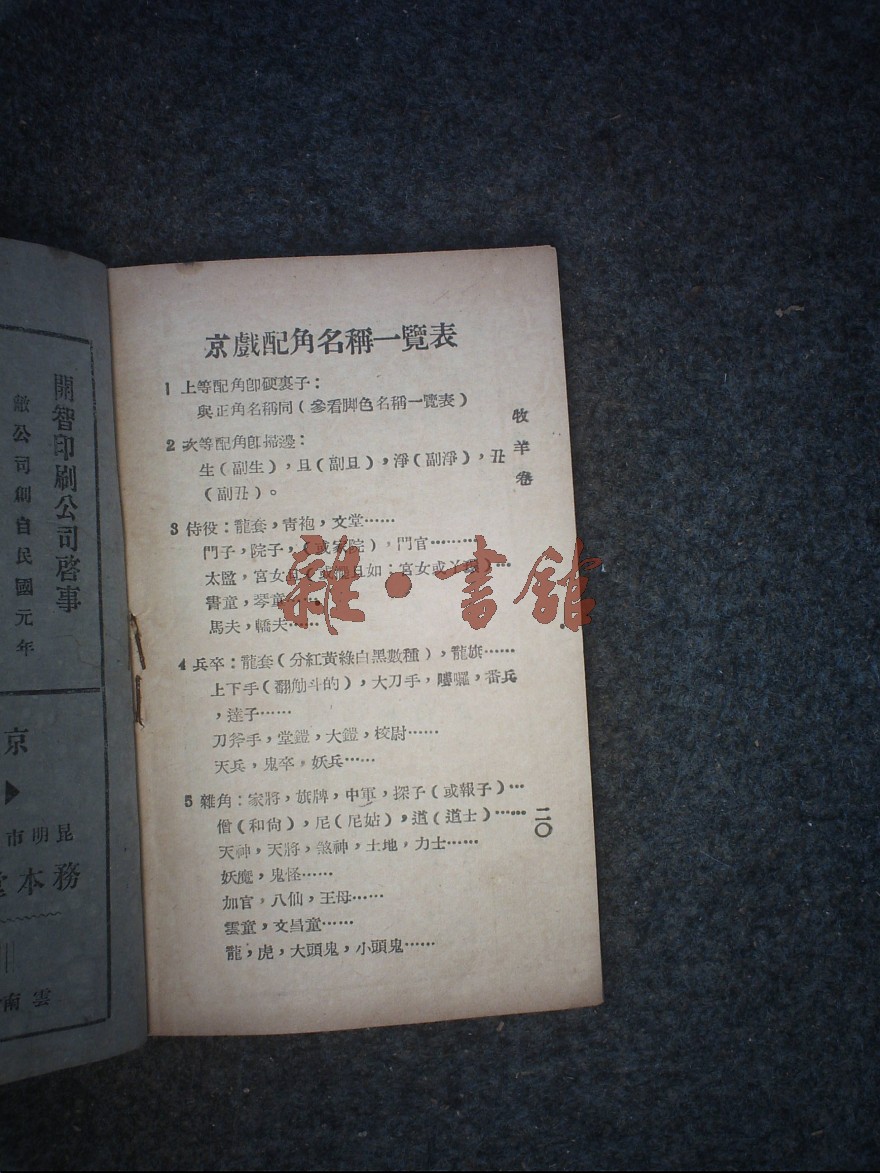 京戲配角名稱一覽表
1 上等配角卽硬裏子：
與正角名稱同（參看脚色名稱一覽表）
2 次等配角卽掃邊：
生（副生），旦（副旦），淨（副淨），丑
（副丑）。
3 侍役：龍套，靑袍，文堂……
門子，院子，（或家院），門官………
太監，宮女旦（或 旦如：宮女或丫環）…
書童，琴童……
馬夫，轎夫……
4 兵卒：龍套（分紅黃綠白黑數種），龍旗……
上下手（翻觔斗的），大刀手，嘍囉，番兵
，達子……
刀斧手，堂鎧，大鎧，校尉……
天兵，鬼卒，妖兵……
5 雜角：家將，旗牌，中軍，探子（或報子）…
僧（和尙），尼（尼姑），道（道士）……
天神，天將，煞神，土地，力士……
妖魔，鬼怪……
加官，八仙，王母……
雲童，文昌童……
龍，虎，大頭鬼，小頭鬼……
牧羊卷
二〇
雜·書館
開智印刷公司啓事
敝公司創自民國元年
京
昆明市
務本堂
雲南